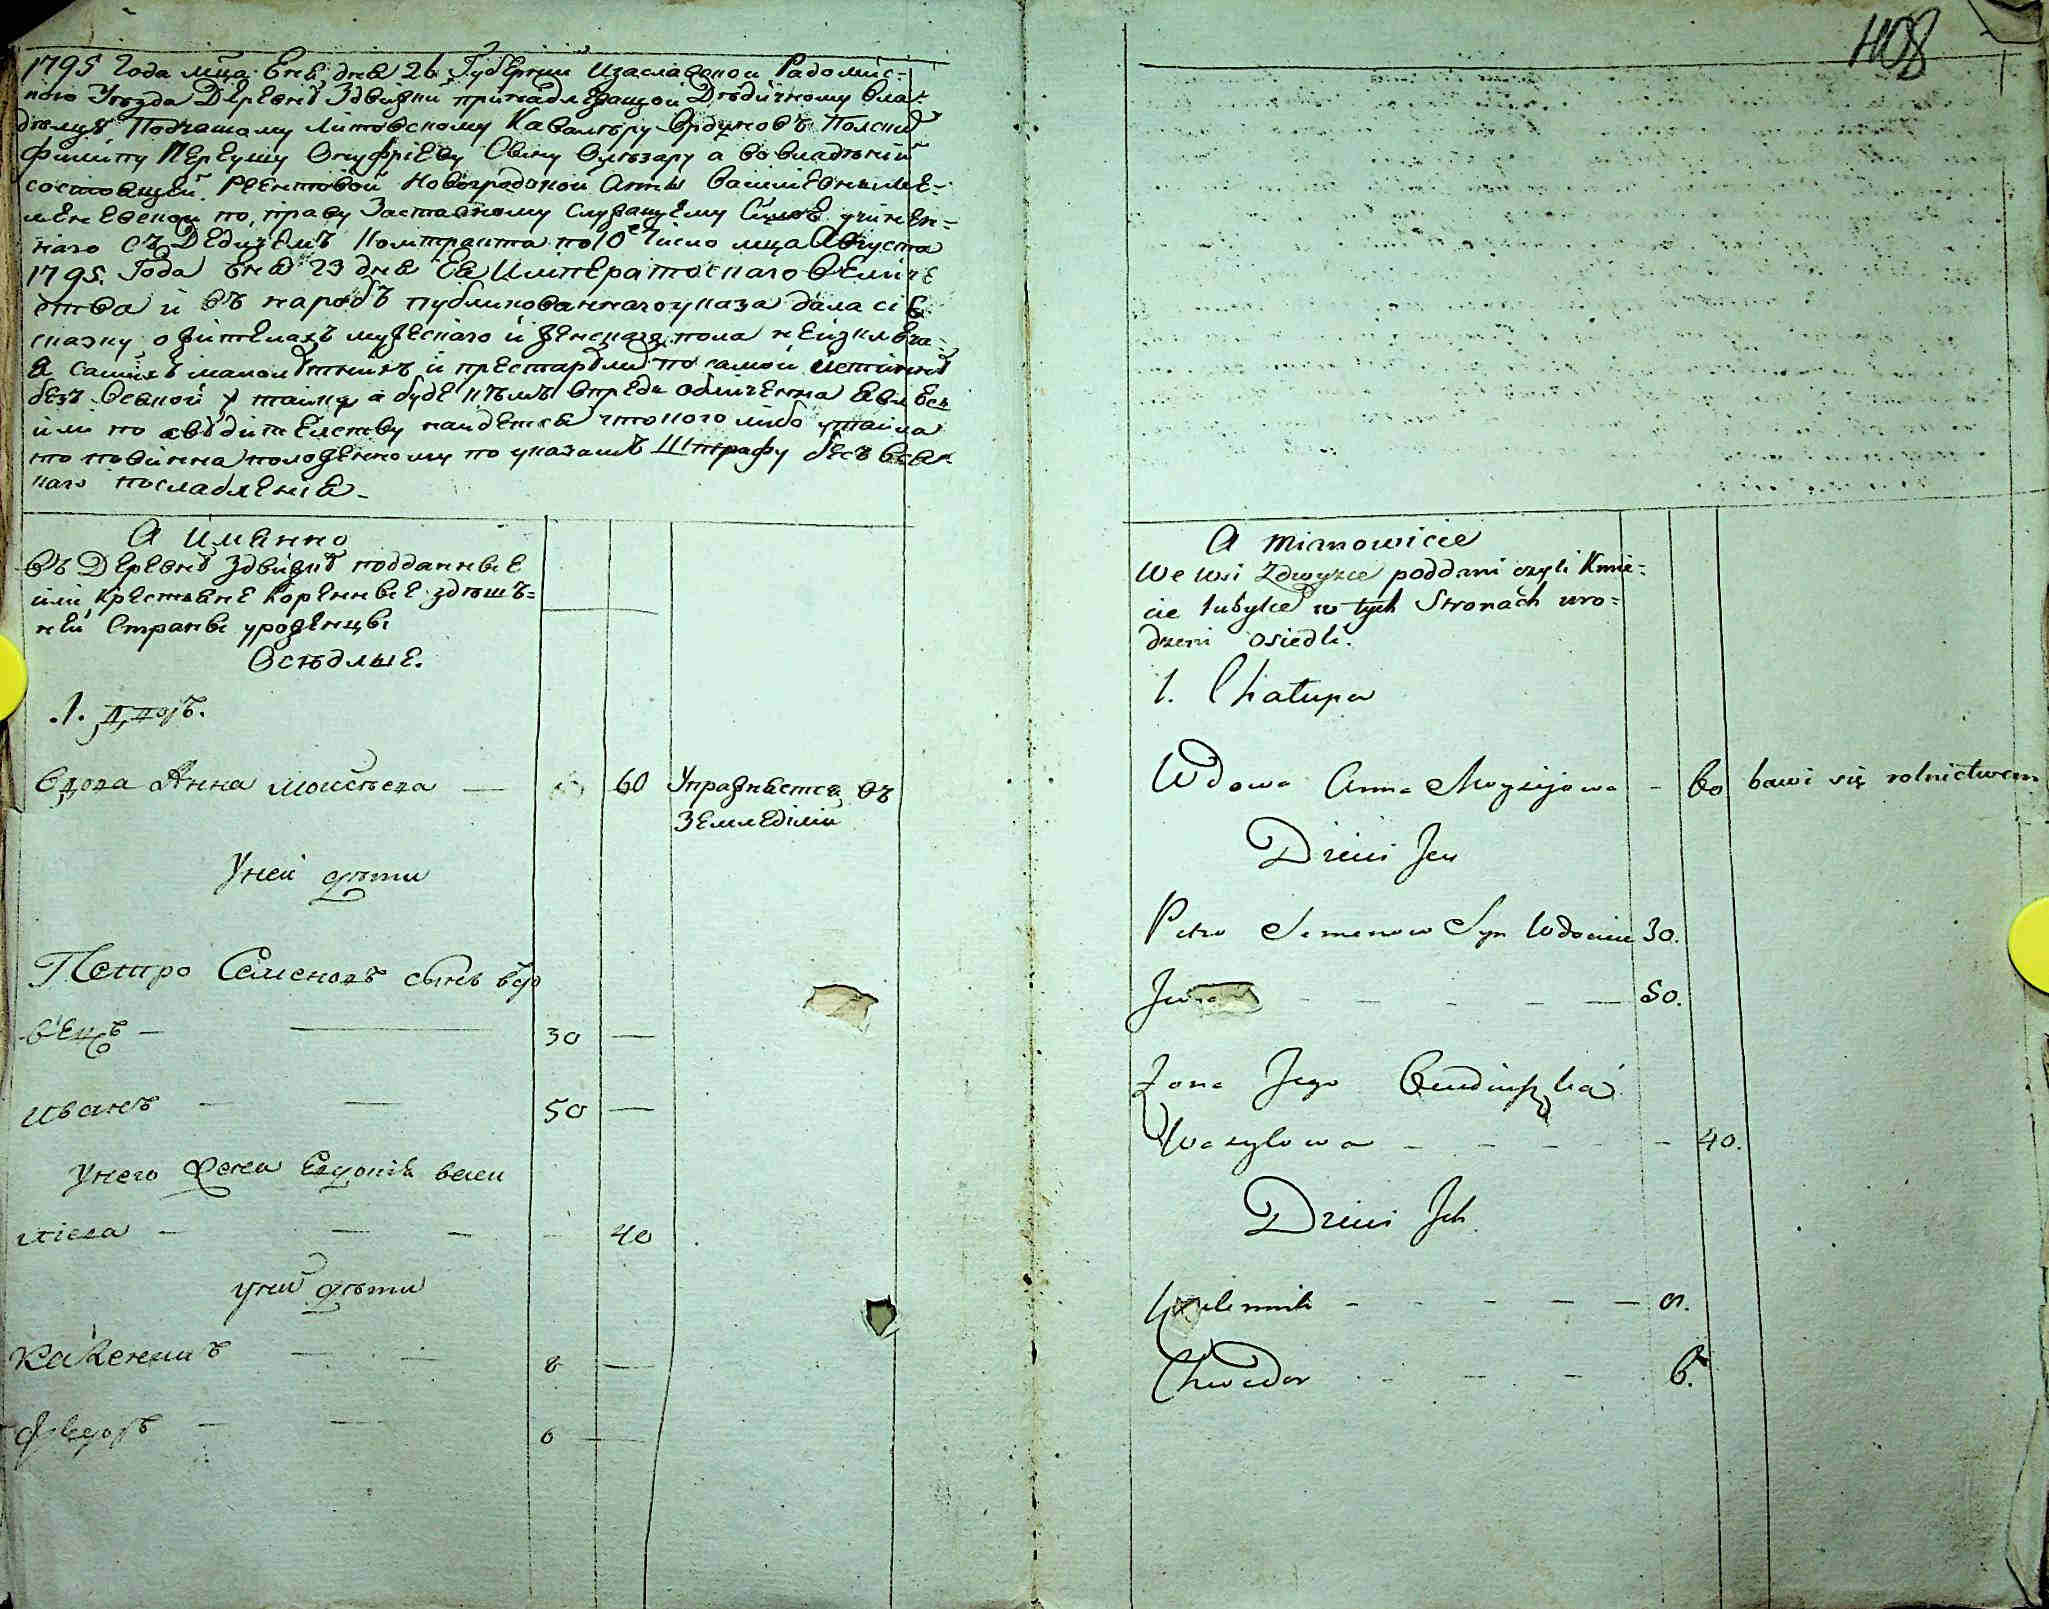 1795 Года мца Енв дня 26 Губернии Изаславской Радомис-
кого Уезда Деревнѣ Здвижки принадлежащой Дѣдичному вла-
дѣлцу Подчашому Литовскому Кавалѣру Ордуновъ Полски
Филипу Нереушу Онуфріеву Сыну а во владѣніи
состоящей Реентовой Новогродской Анны Василіевны
по праву Заставному служащему учинен-
наго съ Дедичемъ Контракта по 10 число мца Августа
1795 Года дня 23 дня Ея Императоскаго величе
ства и въ народъ публикованнаго указа дала сію
сказку о жителахъ мужескаго и женскаго пола неизключа
я самихъ малолѣтнихъ и престарѣлихъ по самой истиннѣ
безъ всякой утайки а буде кѣмъ впредь обличенна явлюсь
или по свѣдителству найдется что кого либо утаила
то повинна положенному по указамъ Штрафу безъ всяк
каго послабленія
408
А именно
въ Деревнѣ Здвижкѣ подданные
или крестьяне коренные здѣшъ=
ней Страны уроженцы
Осѣдлые.
1. Дворъ.
Вдова Анна Моисѣева — 60 Упражняется въ
Земледіліи
У ней дѣти
Петро Семеновъ сынъ вдо
вецъ — 30 —
Иванъ — — 50 —
У него жена Евдокія васи
лиева — — — 40
у ней дѣти
— — 8 —
Фведоръ — — 6 —
A mianowicie
We wsi Zdwyżce poddani czyli Kmie=
cie tubylce w tych Stronach uro=
dzeni osiedli.
1. Chałupa
Wdowa Anna Moyzyjowa - 60 bawi się rolnictwem
Dzieci Jey
Petro Semenow Syn Wdowiec 30.
— — — — — 50.
Żona Jego
Wasylowa — — — — 40.
Dzieci Jch
— — — — — 8.
Chwedor — — — 6.